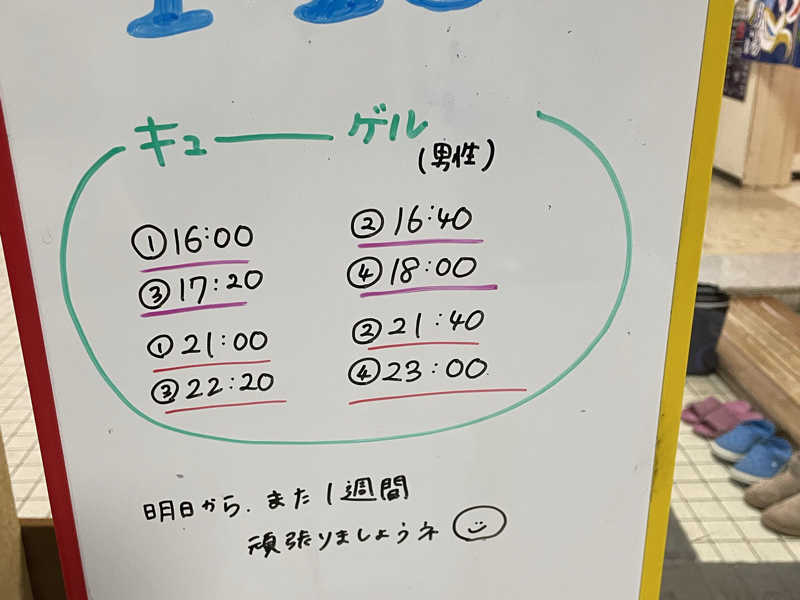 キューゲル
(男性)
①16:00 ②16:40
③17:20 ④18:00
①21:00 ②21:40
③22:20 ④23:00
明日から、また1週間
頑張りましょうネ